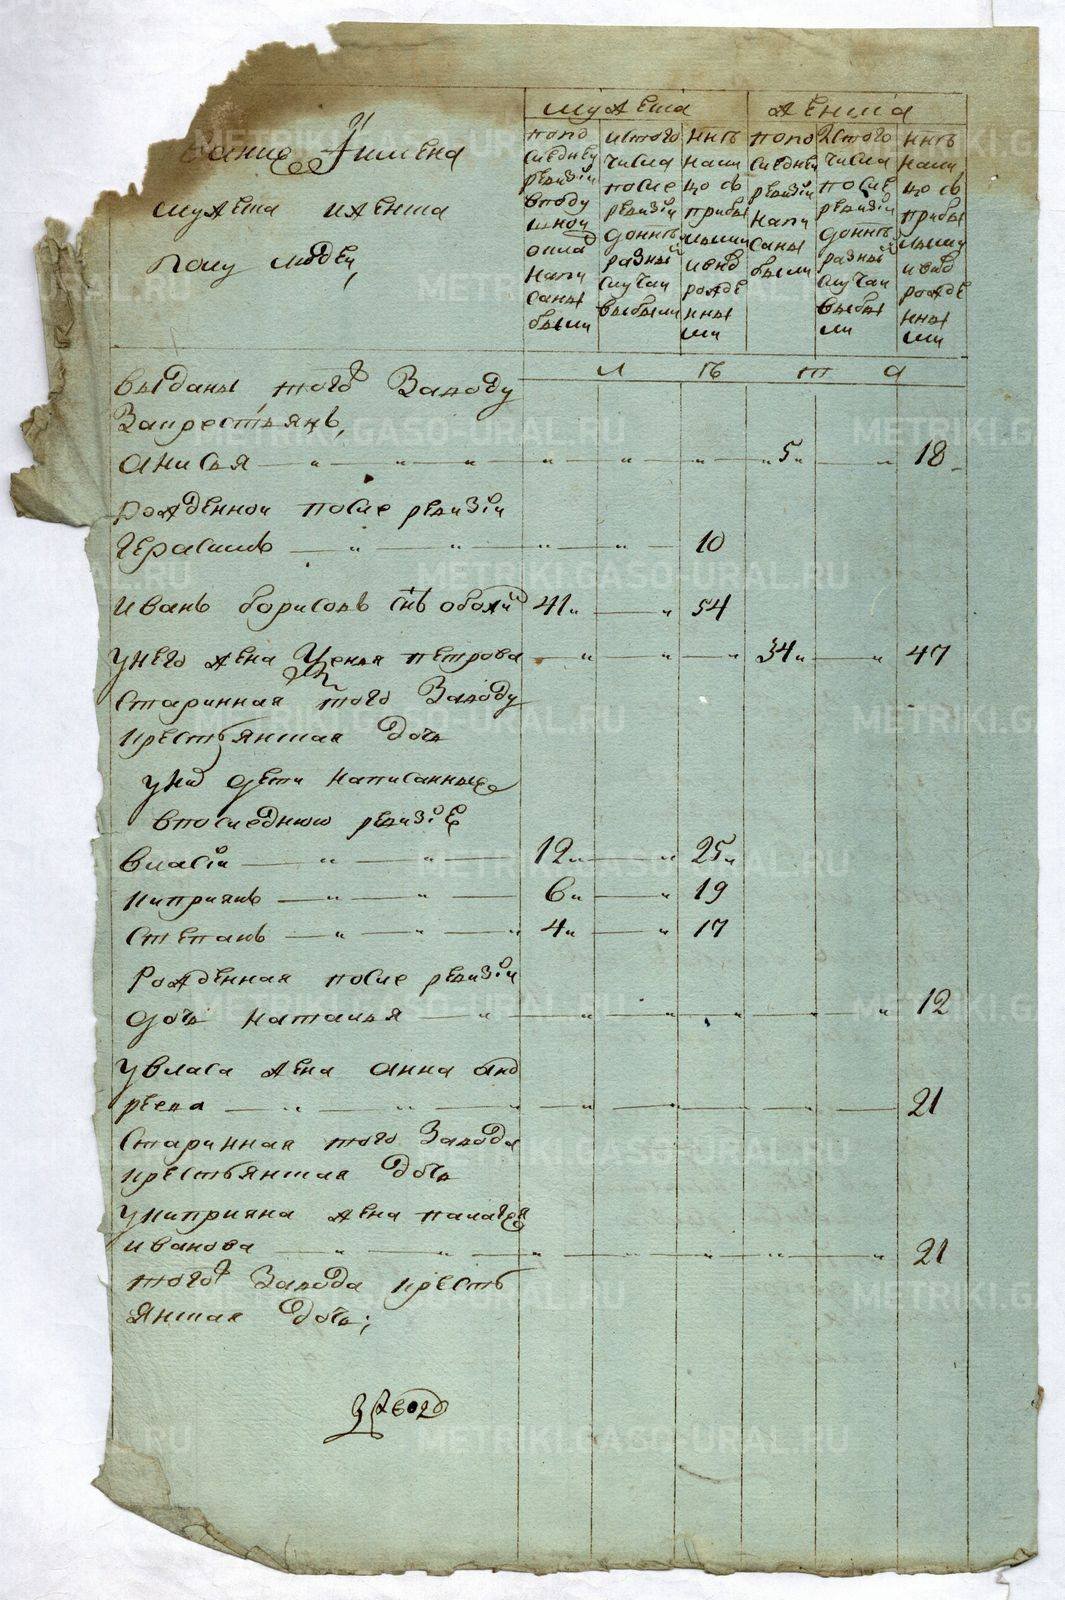 вание Имена
мужеска и женска
полу людей,
мужеска
женска
попо
следней
ревизии
в поду
шной
оклад
напи
саны
были
ис того
числа
после
ревизіи
до нынѣ
разный
случаи
выбыли
нынѣ
нали
цо съ
прибы
лыми
и внѡ
рожде
нны
ми
попо
следней
ревизіи
напи
саны
были
Ис того
числа
после
ревизіи
до нынѣ
разный
случаи
выбы
ли
нынѣ
нали
цо съ
прибы
лыми
и внѡ
рожде
нны
ми
л ѣ т а
выданы того Заводу
Закрестьянъ,
Анисья 5 18
Рожденной после ревизіи
Герасимъ 10
Иванъ борисовъ снъ 41 54
у него жена петрова 34 47
старинная того Заводу
крестьянская дочь
у них дети написанные
в последнюю ревизіе
Власіи 12 25
Киприянъ 6 19
Степанъ 4 17
Рожденная после ревизіи
дочь Наталья 12
у власа жена анна анд
реева 21
старинная того Завода
крестьянская дочь
у киприяна жена палагея
иванова 21
того Завода кресть
янская дочь;